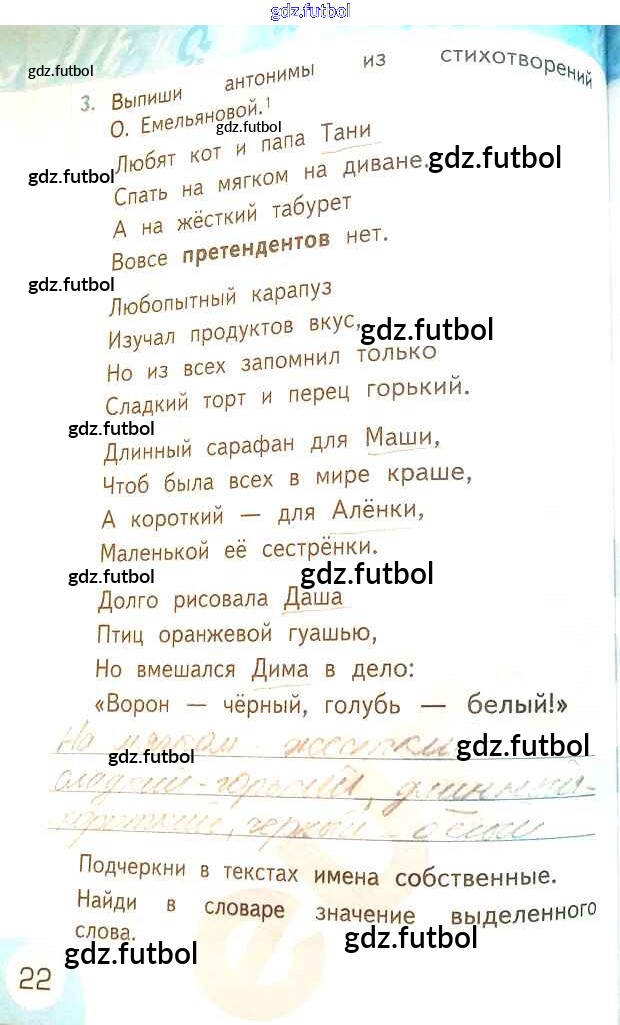 gdz.futbol
gdz.futbol
3. Выпиши антонимы из стихотворений
О. Емельяновой.¹
gdz.futbol
Любят кот и папа Тани
gdz.futbol
gdz.futbol
Спать на мягком на диване.
А на жёсткий табурет
Вовсе претендентов нет.
gdz.futbol
Любопытный карапуз
Изучал продуктов вкус,
gdz.futbol
Но из всех запомнил только
Сладкий торт и перец горький.
gdz.futbol
Длинный сарафан для Маши,
Чтоб была всех в мире краше,
А короткий — для Алёнки,
Маленькой её сестрёнки.
gdz.futbol
gdz.futbol
Долго рисовала Даша
Птиц оранжевой гуашью,
Но вмешался Дима в дело:
«Ворон — чёрный, голубь — белый!»
На мягком - жестки
gdz.futbol
gdz.futbol
сладкий - горький, длинный-
короткий, черный - белый.
Подчеркни в текстах имена собственные.
Найди в словаре значение выделенного
слова.
gdz.futbol
gdz.futbol
22